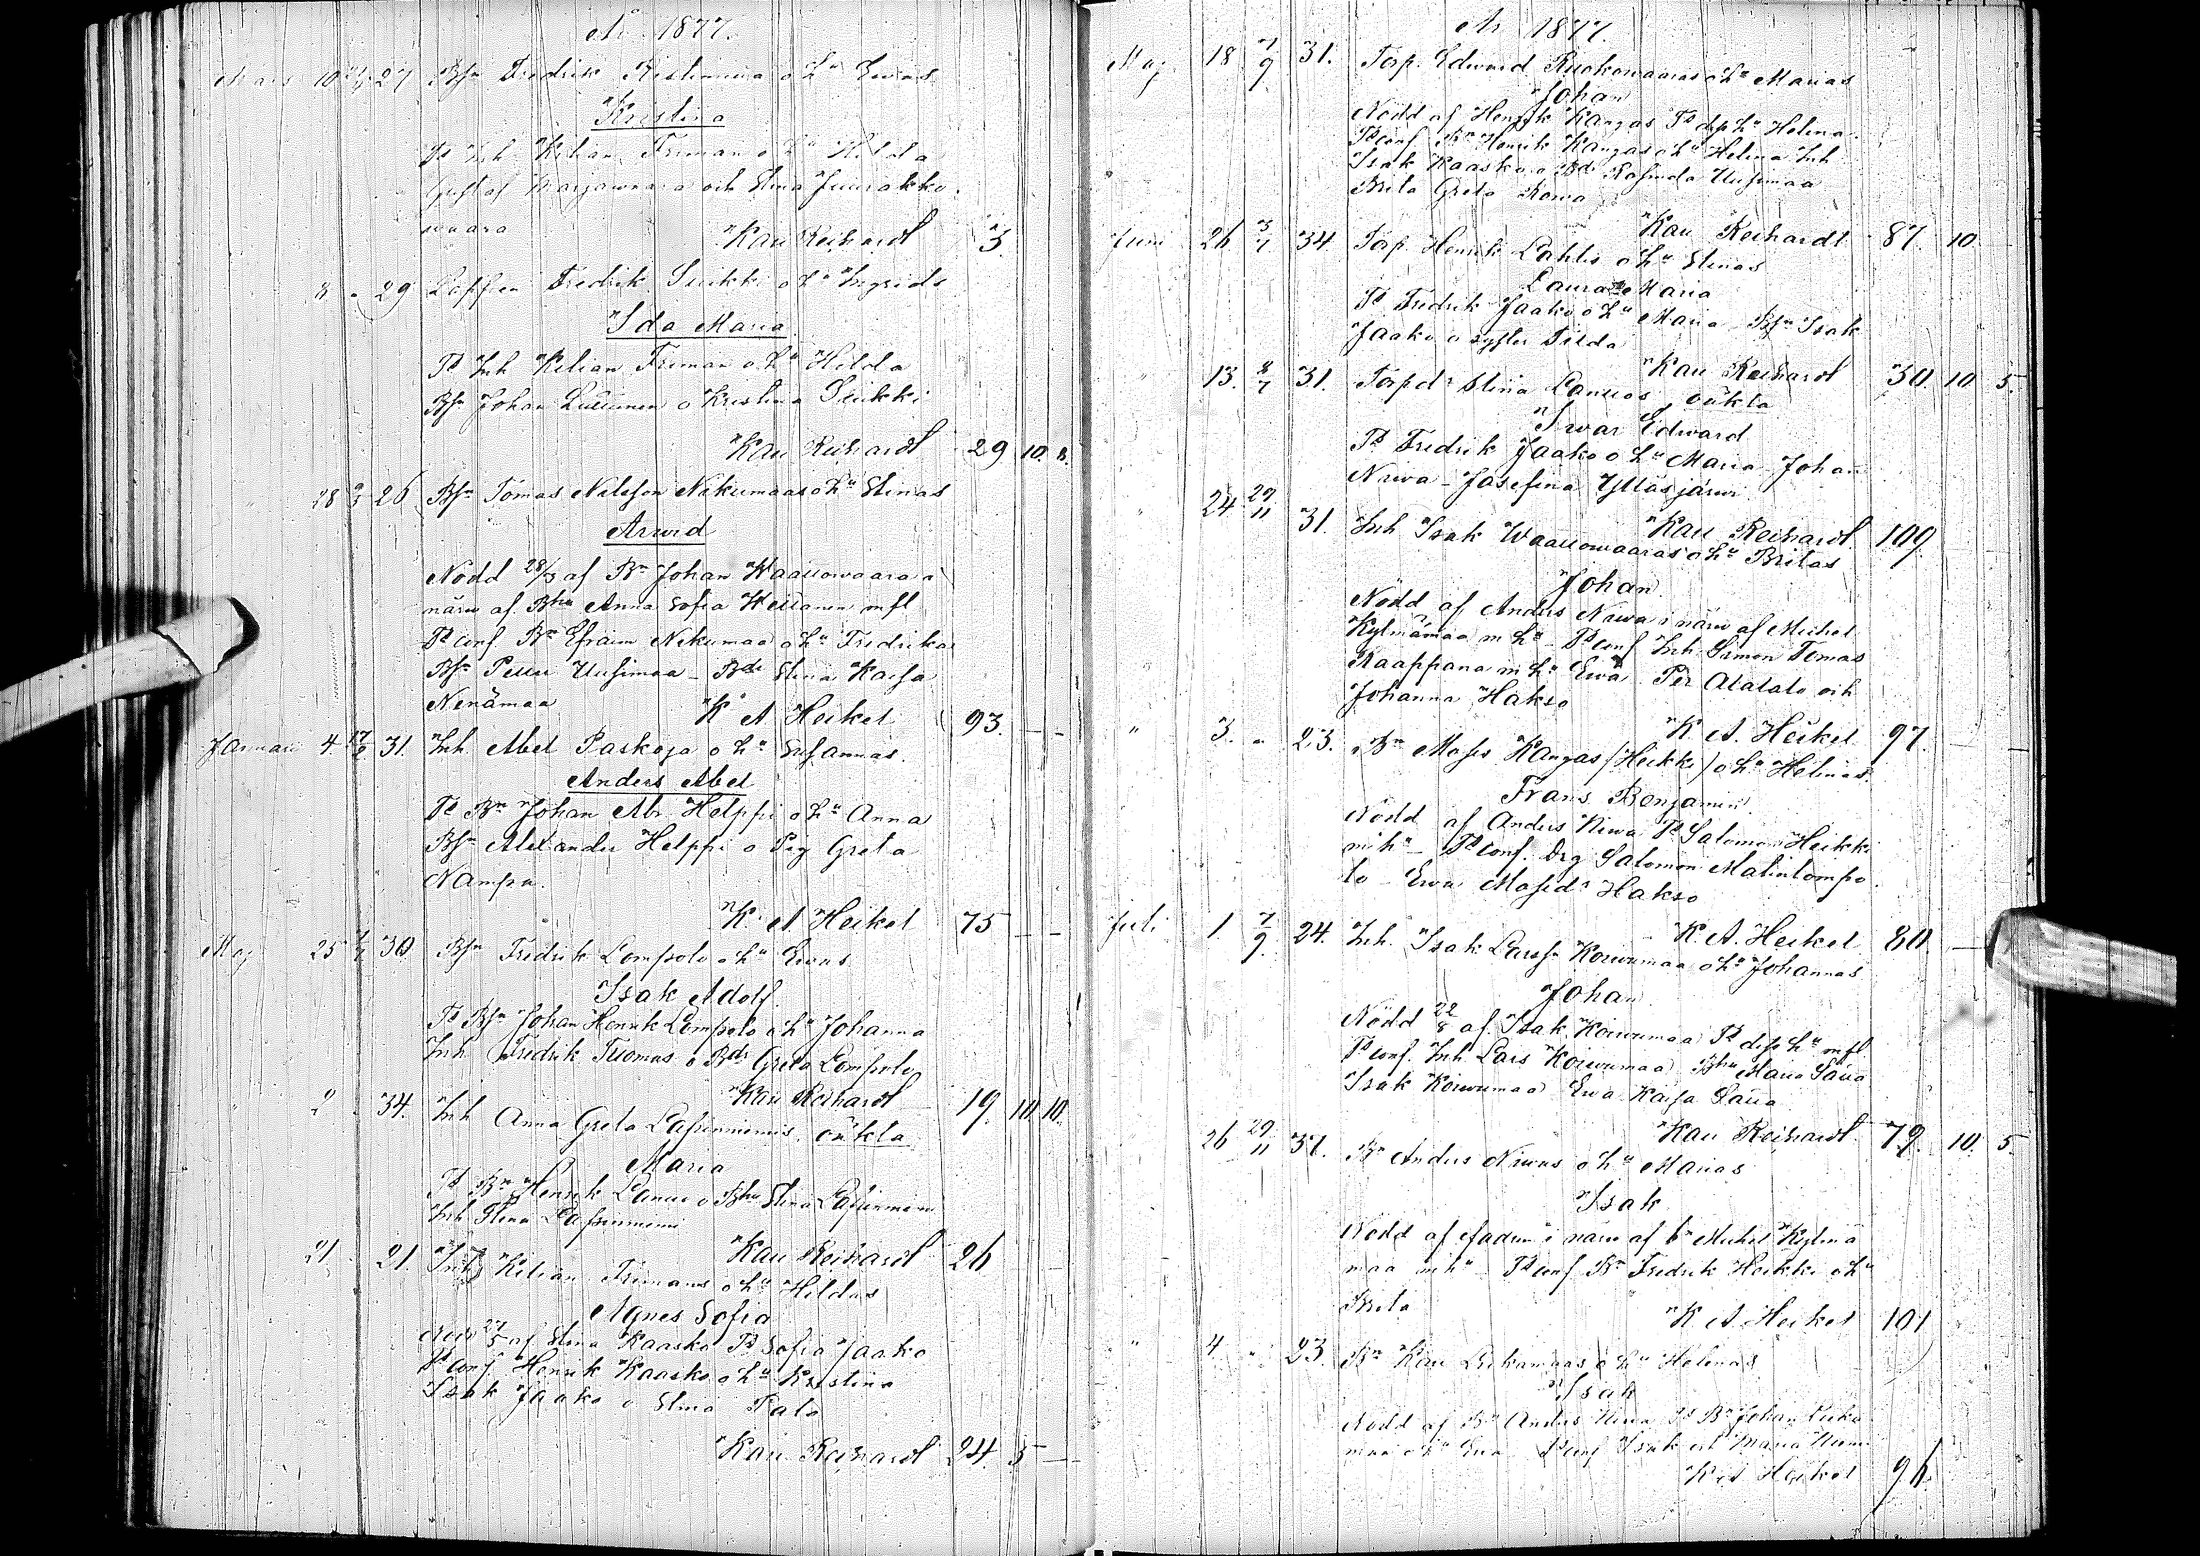 År 1877.
Mars 10 27 Bsn Fredrik Ristimuna o hu Ewas
Kristina
Td Inh Kilian Friman o hu Hilda
Gustaf Marjawaara och Stina Juurakko-
waara
Karl Reihardt 3.
8 " 29 Lappen Fredrik Siikki o hu Ingrids
Ida Maria
Td Inh Kilian Friman o hu Hilda
Bsn Johan o Kristina Siikki
Karl Reihardt 29 10. 8.
28 26 Bsn Tomas Nilsson Nikumaas o hu Stinas
Arwid
Nödd 28/3 af Bn Johan Waaliowaara i
närw af Bhu Anna Sofia mfl
Td conf Bn Efraim Nikumaa o hu Fredrika
Bsn Petter Uusimaa - Bdr Stina Kaisa
Nenämaa K A Heikel 93. - -
Januari 4 31. Inh Abel Paskoja o hu Susannas.
Anders Abel
Td Bn Johan Abr Helppi o hu Anna
Bsn Alexander Helppi o Pig Greta
Nampa.
K. A Heikel 75 - -
Maj 25 30 Bsn Fredrik Lompolo o hu Ewas
Isak Adolf
Td Bsn Johan Henrik Lompolo o hu Johanna
Inh Fredrik Tuomas o Bdr Greta Lompolo
Karl Reihardt 19. 10 10.
" 2 " 34. Inh Anna Greta Lassinniemis, oäkta
Maria
Td Bn Henrik Lanus o Bhu Stina Lassinniemi
Inh Lassinniemi
Karl Reihardt 26
21 " 21. Inh Kilian Frimans o hu Hildas
Agnes Sofia
27/5 af Stina Kaasko Td Sofia Jaako
Td conf Henrik Kaasko o hu Kristina
Isak Jaako o Stina Palo
Karl Reihardt 24. 5 -
År 1877.
Maj 18 7/9 31. Torp. Edward Ruokowaaras o hu Marias
Johan
Nödd af Henrik Kangas Td dop hu Helena.
Td conf Bn Henrik Kangas o hu Helena Inh
Isak Kaasko o Bdr Rosinda Uusimaa
Brita Greta Rowa
Karl Reihardt 87. 10.
Juni 26 3/7 34. Torp. Henrik Lahtis o hu Stinas
Laura Maria
Td Fredrik Jaako o hu Maria Bsn Isak
Jaako o syster Tilda
Karl Reihardt 30 10 5.
" 13. 8/7 31. Torpdr Stina Lanuos oäkta
Iwar Edward
Td Fredrik Jaako o hu Maria Johan
Niwa - Josefina Ylläsjärwi
Karl Reihardt 109.
" 24 29/11 31. Inh Isak Waaliowaaras o hu Britas
Johan
Nödd af Anders Niwa i närw af Michel
Kylmämaa m hu - Td conf Inh Simon Tomas
Kaappana m hu Ewa Per Alatalo och
Johanna Hakso
K A. Heikel 97.
" 3. " 23. Bn Moses Kangas (Heikki) o hu Helenas
Frans Benjamin
Nödd af Anders Niwa Td Salomon Heikki
m hu - Td conf. Drg Salomon Matinlompo
lo - Ewa Mosesdr Hakso
K. A. Heikel 80. -
Juli 1 7/9. 24. Inh. Isak Larssn Koiwumaa o hu Johannas
Johan
Nödd 22/8 af Isak Koiwumaa Td dop hu mfl
Td conf. Inh Lars Koiwumaa Bhu Maria
Isak Koiwumaa Ewa Kaisa
Karl Reihardt 79. 10. 5.
26 29/11 37. Bn Anders Niwas o hu Marias
Isak
Nödd af fadren i närw af bn Michel Kylmä
maa m hu - Td conf Bn Fredrik Heikki o hu
Brita
K A. Heikel 101
" 4. " 23. Bn Karl Liekamaas o hu Helenas
Isak
Nödd af Bn Anders Niwa Td Bn Johan Lieka
maa o hu Ewa Td conf Isak och Maria
K A Heikel 96.